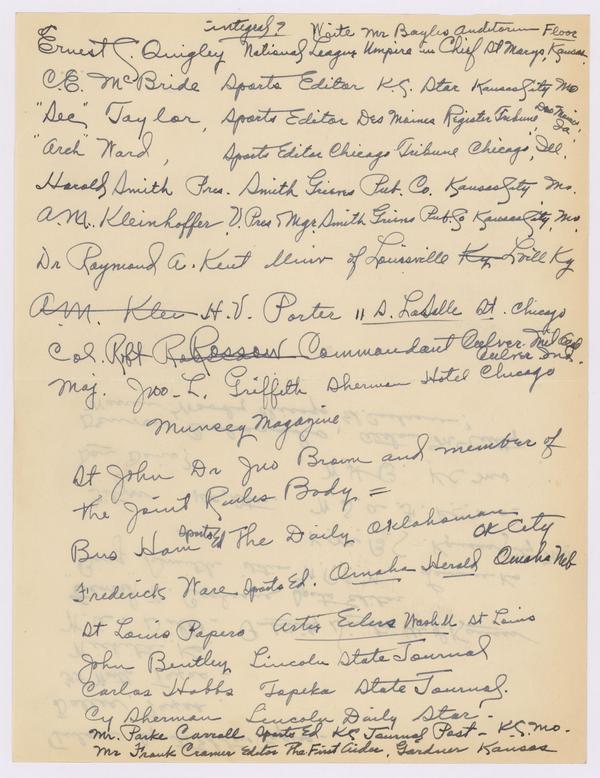 integral? Write Mr Bayles Auditorium Floor
Ernest C. Quigley National League Umpire in Chief St Marys, Kansas
C.E. McBride Sports Editor K.C. Star Kansas City Mo
"Sec" Taylor, Sports Editor Des Moines Register Tribune Des Moines, Ia.
"Arch" Ward, Sports Editor Chicago Tribune Chicago, Ill.
Harold Smith Pres. Smith Grieves Pub. Co. Kansas City Mo.
A.M. Kleinhoffer V. Pres & Mgr. Smith Grieves Pub. Co Kansas City, Mo
Dr Raymond A. Kent Univ of Louisville Ky Lville Ky
A.M. Klei H.V. Porter 11 S. LaSalle St. Chicago
Col. Robt Rossow Commandant Culver Mil Acd
Culver Ind.
Maj. Jno. L. Griffith Sherman Hotel Chicago
Munsey Magazine
St John Dr Jno Brown and member of
the Joint Rules Body =
Bus Ham Sports Ed The Daily Oklahoman
OK City
Frederick Ware Sports Ed. Omaha Herald Omaha Neb
St Louis Papers Artie Eilers Wash U St Louis
John Bentley Lincoln State Journal
Carlos Hobbs Topeka State Journal.
Cy Sherman Lincoln Daily Star -
Mr. Parke Carroll Sports Ed KC Journal Post - K.C. Mo.
Mr Frank Cramer Editor The First Aider, Gardner Kansas